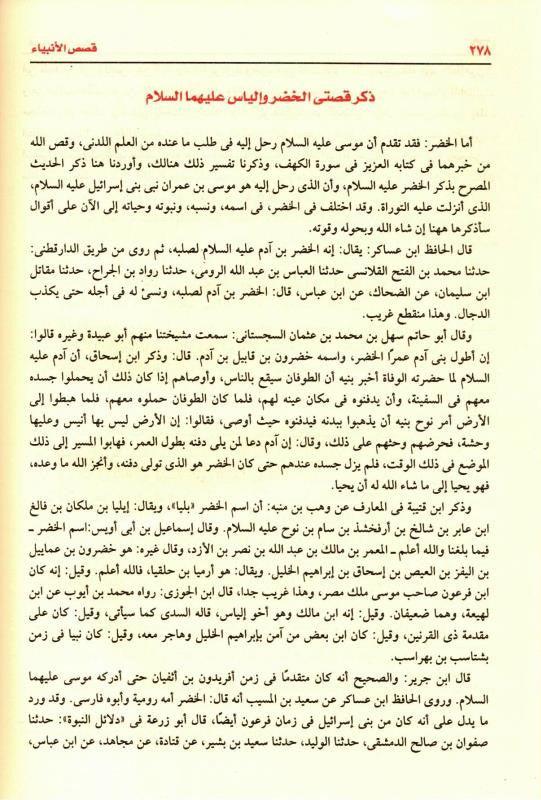 ٢٧٨
قصص الأنبياء
ذكر قصتى الخضر وإلياس عليهما السلام
أما الخضر: فقد تقدم أن موسى عليه السلام رحل إليه فى طلب ما عنده من العلم اللدنى، وقص الله
من خبرهما فى كتابه العزيز فى سورة الكهف، وذكرنا تفسير ذلك هنالك، وأوردنا هنا ذكر الحديث
المصرح بذكر الخضر عليه السلام، وأن الذى رحل إليه هو موسى بن عمران نبى بنى إسرائيل عليه السلام،
الذى أنزلت عليه التوراة. وقد اختلف فى الخضر، فى اسمه، ونسبه، ونبوته وحياته إلى الآن على أقوال
سأذكرها ههنا إن شاء الله وبحوله وقوته.
قال الحافظ ابن عساكر: يقال: إنه الخضر بن آدم عليه السلام لصلبه، ثم روى من طريق الدارقطنى:
حدثنا محمد بن الفتح القلانسى حدثنا العباس بن عبد الله الرومى، حدثنا رواد بن الجراح، حدثنا مقاتل
ابن سليمان، عن الضحاك، عن ابن عباس، قال: الخضر بن آدم لصلبه، ونسئ له فى أجله حتى يكذب
الدجال. وهذا منقطع غريب.
وقال أبو حاتم سهل بن محمد بن عثمان السجستانى: سمعت مشيختنا منهم أبو عبيدة وغيره قالوا:
إن أطول بنى آدم عمرًا الخضر، واسمه خضرون بن قابيل بن آدم. قال: وذكر ابن إسحاق، أن آدم عليه
السلام لما حضرته الوفاة أخبر بنيه أن الطوفان سيقع بالناس، وأوصاهم إذا كان ذلك أن يحملوا جسده
معهم فى السفينة، وأن يدفنوه فى مكان عينه لهم، فلما كان الطوفان حملوه معهم، فلما هبطوا إلى
الأرض أمر نوح بنيه أن يذهبوا ببدنه فيدفنوه حيث أوصى، فقالوا: إن الأرض ليس بها أنيس وعليها
وحشة، فحرضهم وحثهم على ذلك، وقال: إن آدم دعا لمن يلى دفنه بطول العمر، فهابوا المسير إلى ذلك
الموضع فى ذلك الوقت، فلم يزل جسده عندهم حتى كان الخضر هو الذى تولى دفنه، وأنجز الله ما وعده،
فهو يحيا إلى ما شاء الله له أن يحيا.
وذكر ابن قتيبة فى المعارف عن وهب بن منبه: أن اسم الخضر «بليا»، ويقال: إيليا بن ملكان بن فالغ
ابن عابر بن شالخ بن أرفخشذ بن سام بن نوح عليه السلام. وقال إسماعيل بن أبى أويس:اسم الخضر ـ
فيما بلغنا والله أعلم ـ المعمر بن مالك بن عبد الله بن نصر بن الأزد، وقال غيره: هو خضرون بن عماييل
بن اليفز بن العيص بن إسحاق بن إبراهيم الخليل. ويقال: هو أرميا بن حلقيا، فالله أعلم. وقيل: إنه كان
ابن فرعون صاحب موسى ملك مصر، وهذا غريب جدا، قال ابن الجوزى: رواه محمد بن أيوب عن ابن
لهيعة، وهما ضعيفان. وقيل: إنه ابن مالك وهو أخو إلياس، قاله السدى كما سيأتى، وقيل: كان على
مقدمة ذى القرنين، وقيل: كان ابن بعض من آمن بإبراهيم الخليل وهاجر معه، وقيل: كان نبيا فى زمن
بشتاسب بن بهراسب.
قال ابن جرير: والصحيح أنه كان متقدمًا فى زمن أفريدون بن أثفيان حتى أدركه موسى عليهما
السلام. وروى الحافظ ابن عساكر عن سعيد بن المسيب أنه قال: الخضر أمه رومية وأبوه فارسى. وقد ورد
ما يدل على أنه كان من بنى إسرائيل فى زمان فرعون أيضًا، قال أبو زرعة فى «دلائل النبوة»: حدثنا
صفوان بن صالح الدمشقى، حدثنا الوليد، حدثنا سعيد بن بشير، عن قتادة، عن مجاهد، عن ابن عباس،